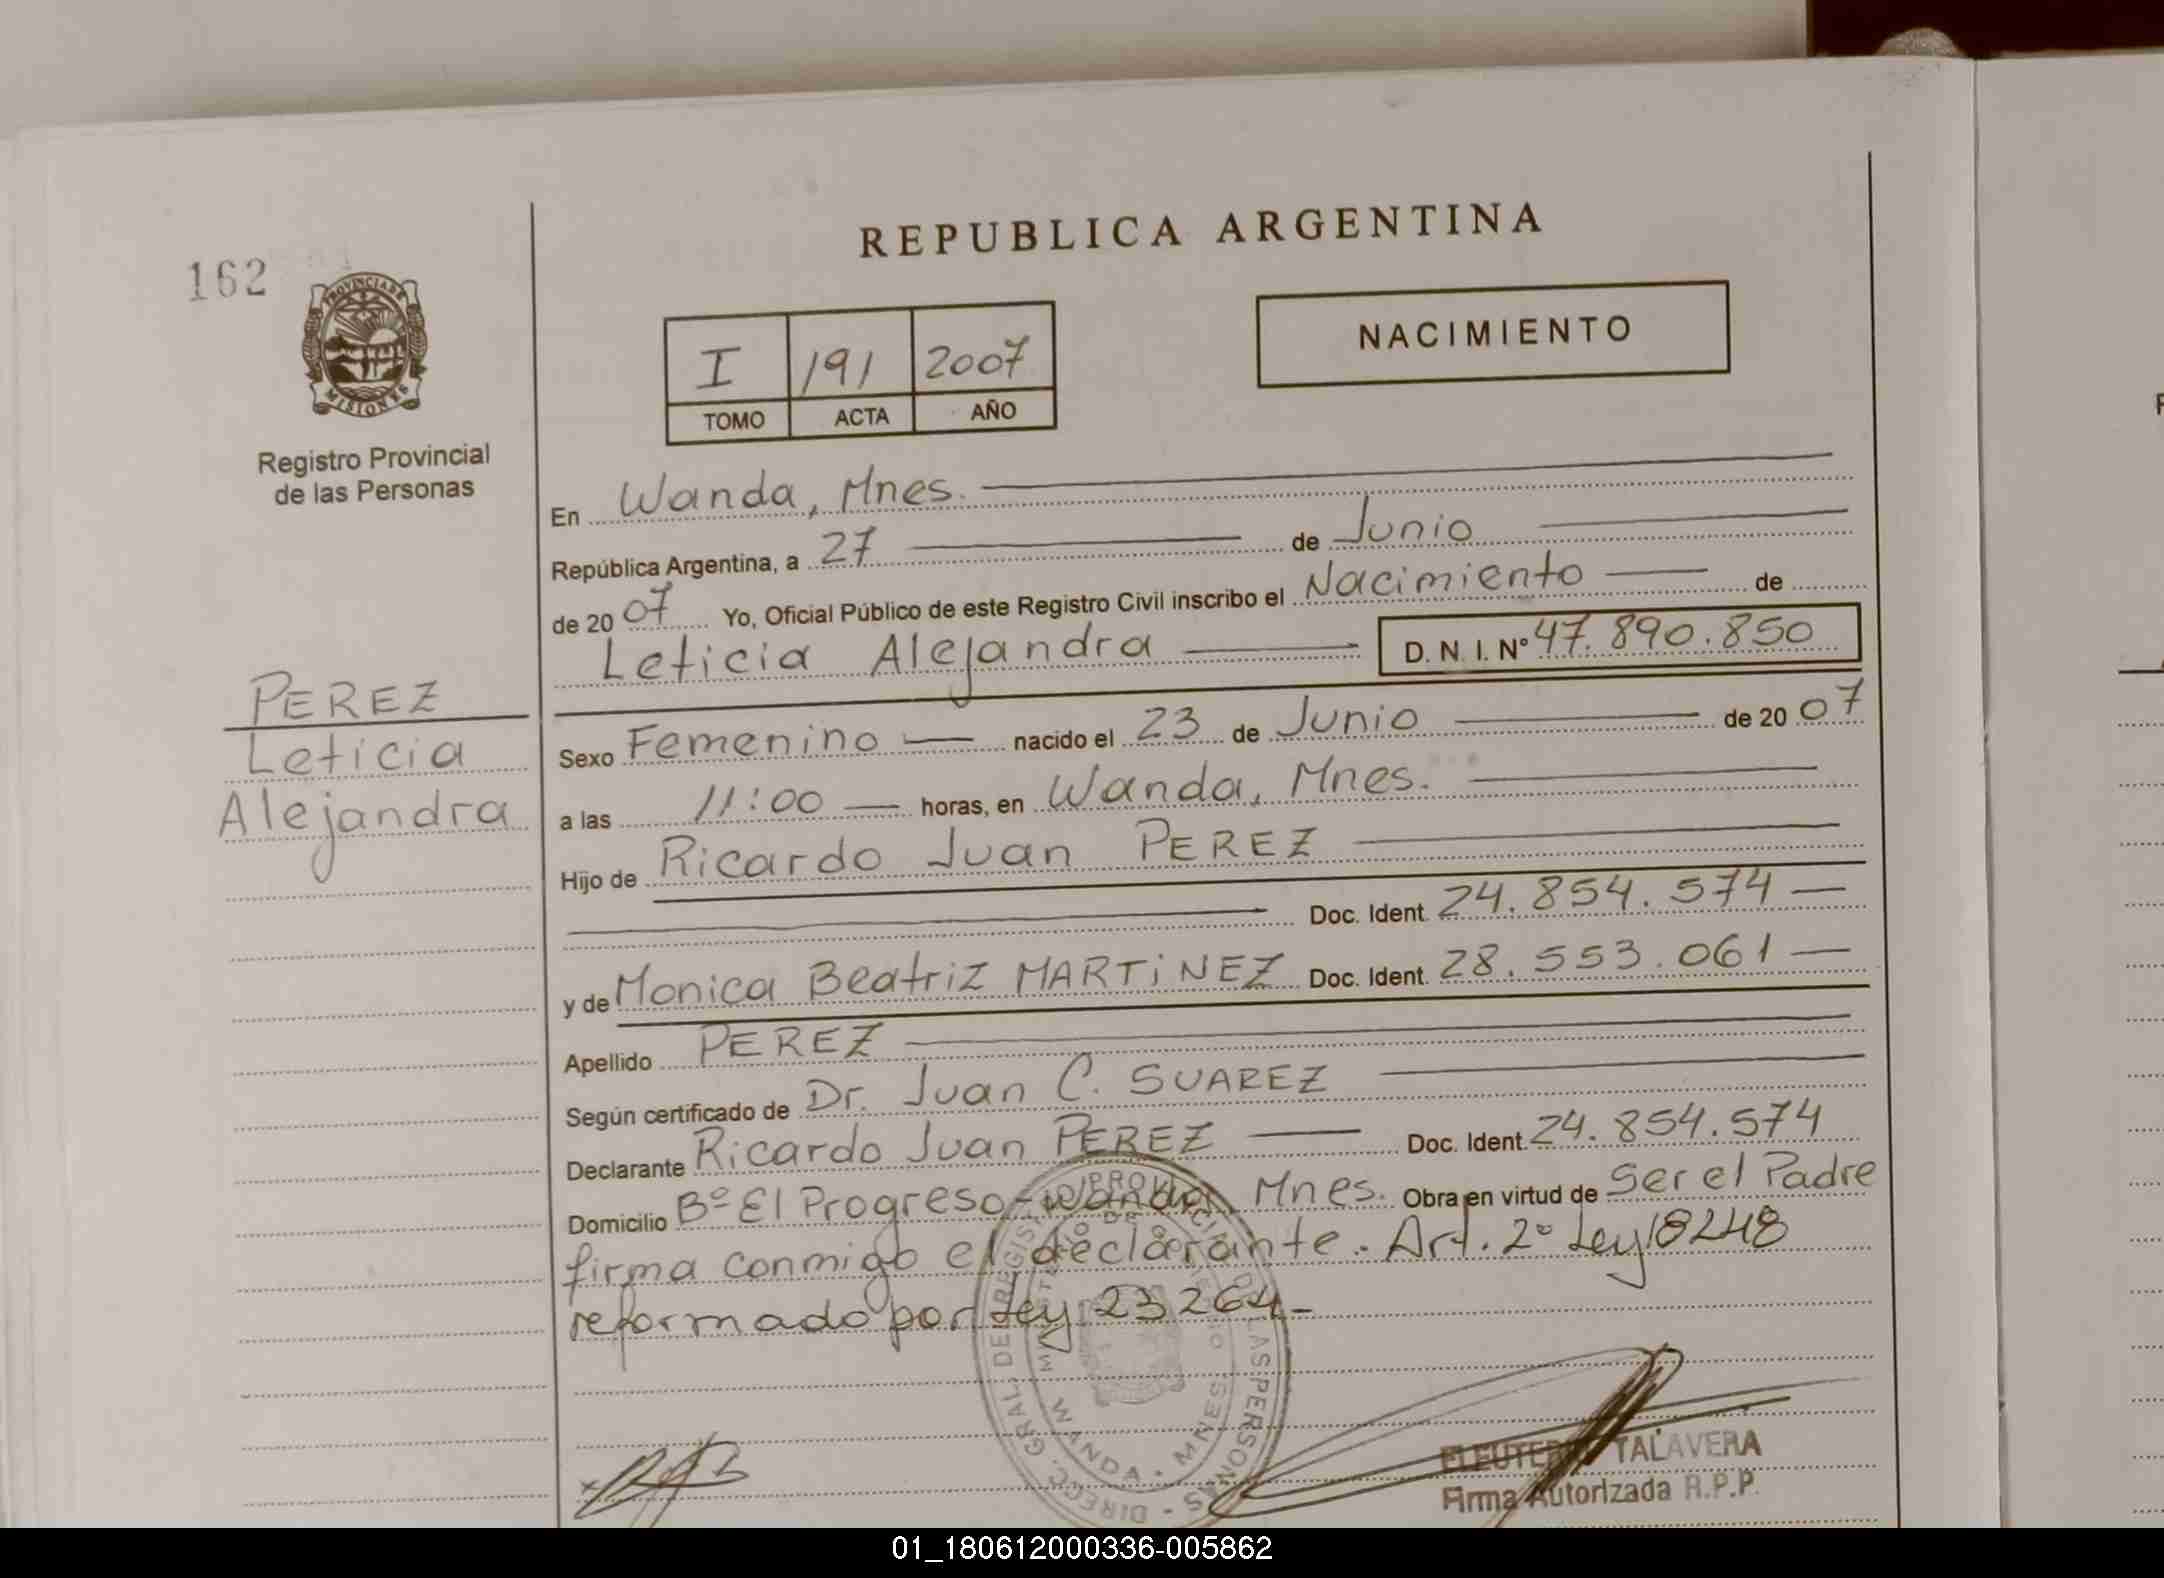 162
PROVINCIA DE
MISIONES
Registro Provincial
de las Personas
REPUBLICA ARGENTINA
I 191 2007
TOMO ACTA AÑO
NACIMIENTO
En Wanda, Mnes.
República Argentina, a 27 de Junio
de 2007 Yo, Oficial Público de este Registro Civil inscribo el Nacimiento de
Leticia Alejandra D. N. I. Nº 47.890.850
PEREZ
Leticia
Alejandra
Sexo Femenino nacido el 23 de Junio de 2007
a las 11:00 horas, en Wanda, Mnes.
Hijo de Ricardo Juan PEREZ
Doc. Ident. 24.854.574
y de Monica Beatriz MARTiNEZ Doc. Ident. 28.553.061
Apellido PEREZ
Según certificado de Dr. Juan C. SUAREZ
Declarante Ricardo Juan PEREZ Doc. Ident. 24.854.574
Domicilio Bº El Progreso - Wanda, Mnes. Obra en virtud de ser el Padre
firma conmigo el declarante. Art. 2º Ley 18248
reformado por Ley 23264-
DIREC. GRAL. DEL REGISTRO PROVINCIAL DE LAS PERSONAS
WANDA - MNES
TALAVERA
Firma Autorizada R.P.P.
01_180612000336-005862